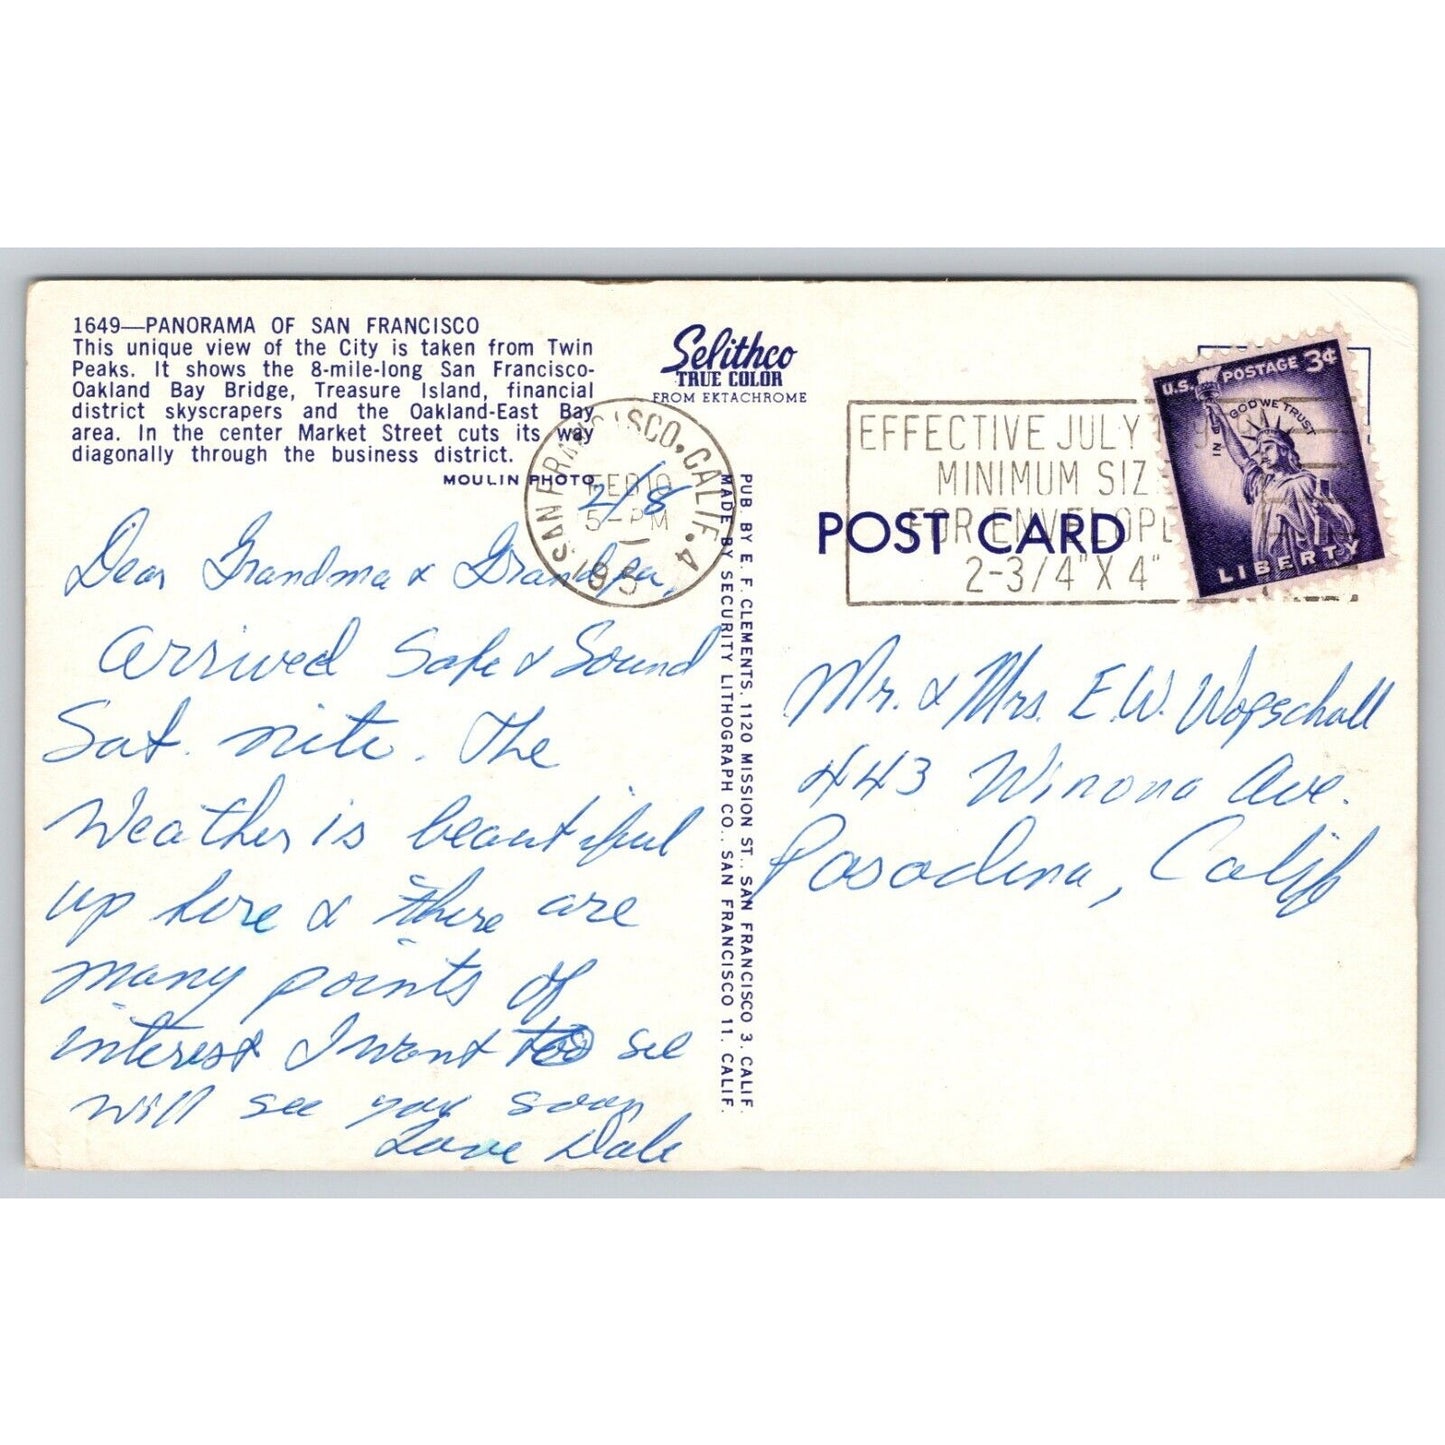 1649—PANORAMA OF SAN FRANCISCO
This unique view of the City is taken from Twin
Peaks. It shows the 8-mile-long San Francisco-
Oakland Bay Bridge, Treasure Island, financial
district skyscrapers and the Oakland-East Bay
area. In the center Market Street cuts its way
diagonally through the business district.
MOULIN PHOTO
Selithco
TRUE COLOR
FROM EKTACHROME
SAN FRANCISCO, CALIF. 4
FEB 10
5-PM
2/8
Dear Grandma & Grandpa,
Arrived Safe & Sound
Sat. nite. The
Weather is beautiful
up here & there are
many points of
interest I want to see
will see you soon
Love Dale
PUB. BY E. F. CLEMENTS, 1120 MISSION ST., SAN FRANCISCO 3, CALIF.
MADE BY SECURITY LITHOGRAPH CO., SAN FRANCISCO 11, CALIF.
EFFECTIVE JULY
MINIMUM SIZ
FOR ENVELOPE
2-3/4" X 4"
POST CARD
U.S. POSTAGE 3¢
IN GOD WE TRUST
LIBERTY
Mr. & Mrs. E.W. Wopschall
443 Winona Ave.
Pasadena, Calif